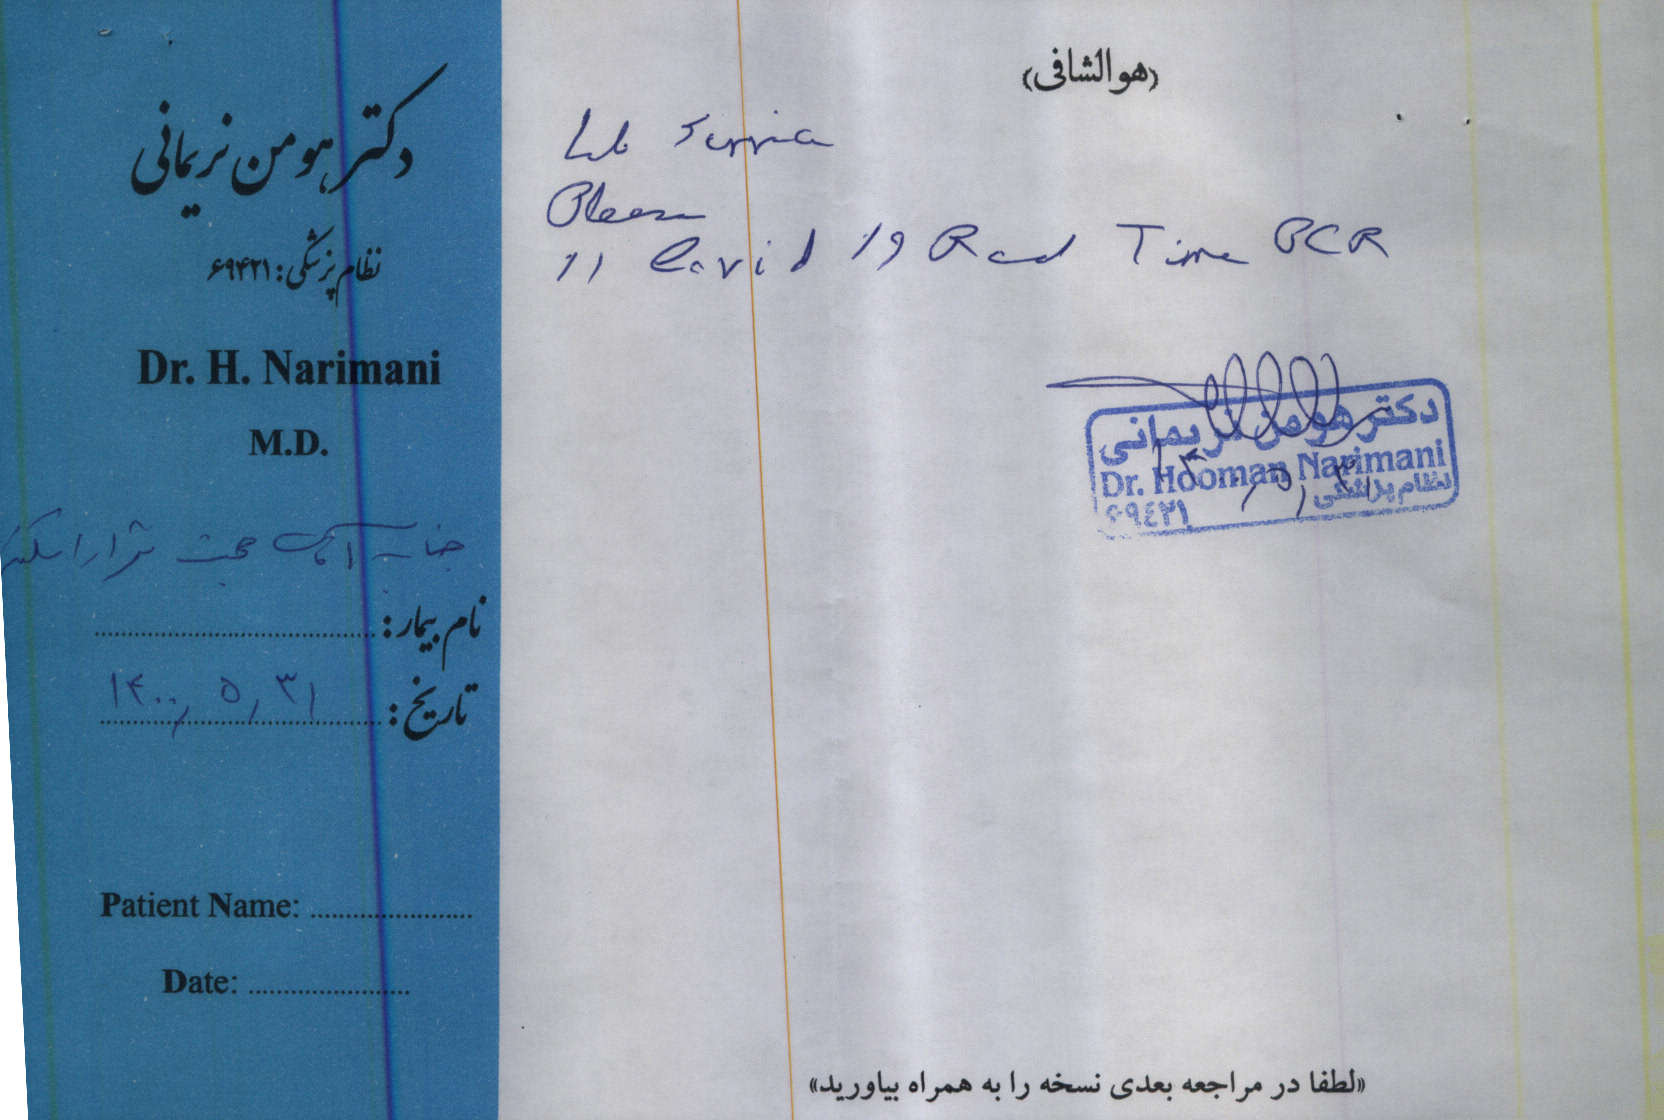 دکتر هومن نریمانی
نظام پزشکی: ۶۹۴۲۱
Dr. H. Narimani
M.D.
نام بیمار:
تاریخ: ۱۴۰۰,۵,۳۱
Patient Name:
Date:
(هوالشافی)
Lab Service
Please
1) Covid 19 Real Time PCR
دکتر هومن نریمانی
Dr. Hooman Narimani
نظام پزشکی
۶۹٤۲۱
«لطفا در مراجعه بعدی نسخه را به همراه بیاورید»